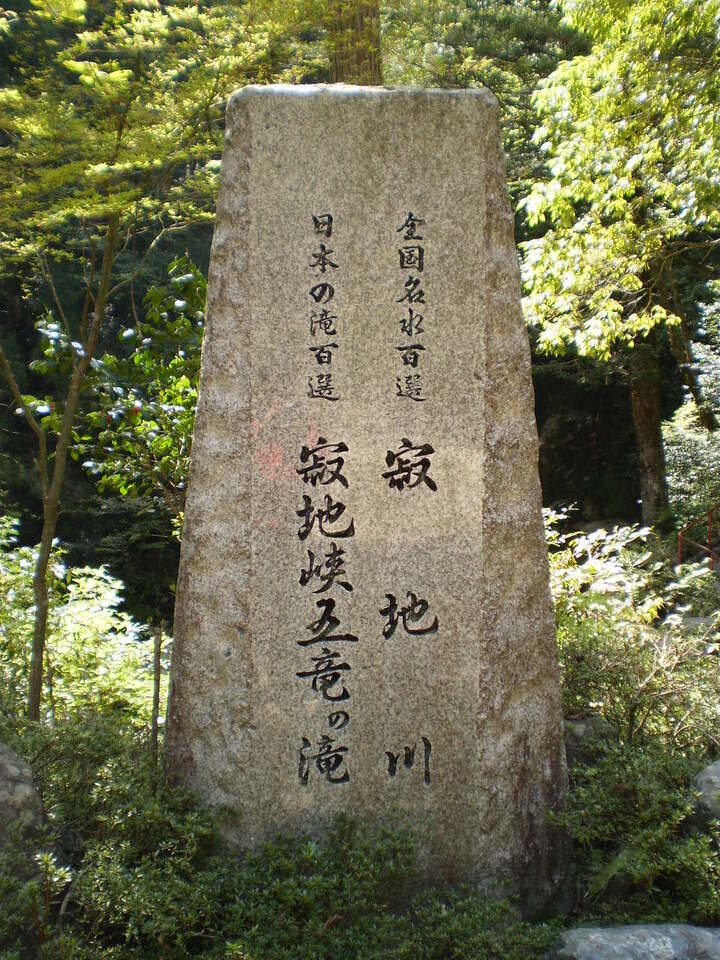 全国名水百選 寂地川
日本の滝百選 寂地峡五竜の滝